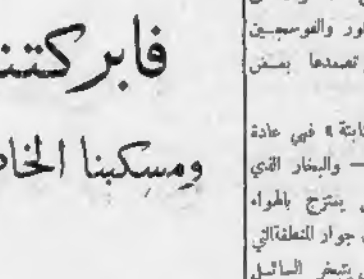 ور والفوسجين
تصمدها بعض
ابتة » فهي عادة
— والبخار الذي
يمتزج بالهواء
جوار المنطقة التي
يتبخر السائل
فابركتنـ
ومسكبنا الخا